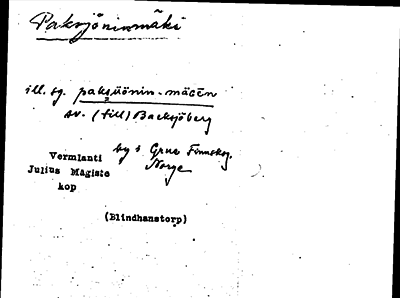 Paksjöninmäki
ill. sg. paksúönin-mäcēn
sv. (till) Backsjöberg
by i Grue Finnskog.
Norge
Vermlanti
Julius Mägiste
kop
(Blindhanstorp)